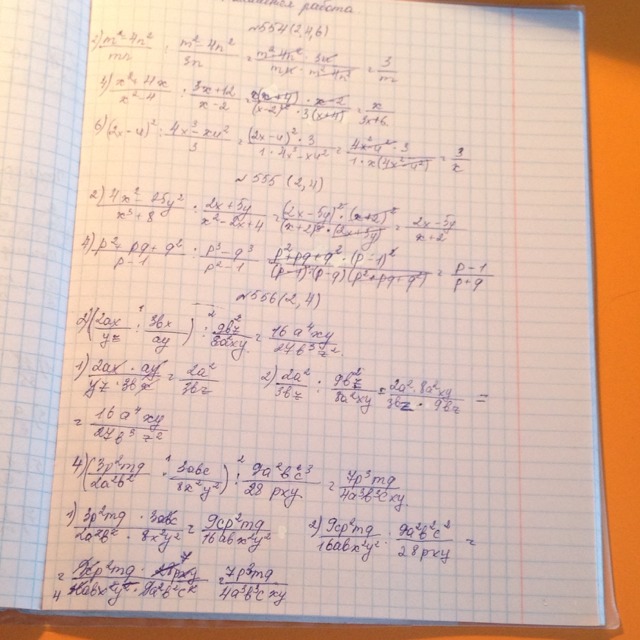 работа
№554(2,4,6)
2) (m²-4n²)/(mn) : (m²-4n²)/(3n) = (m²-4n² · 3n)/(mn · m²-4n²) = 3/m
4) (x²+4x)/(x²-4) : (3x+12)/(x-2) = (x(x+4) · x-2)/((x-2) · 3(x+4)) = x/(3x+6)
6) (2x-y)² : (4x³-xy²)/3 = ((2x-y)² · 3)/(1 · 4x³-xy²) = (4x²-y² · 3)/(1 · x(4x²-y²)) = 3/x
№555(2,4)
2) (4x²-25y²)/(x³+8) : (2x+5y)/(x²-2x+4) = (2x-5y)/(x+2)
4) (p²+pq+q²)/(p-1) : (p³-q³)/(p²-1) (p²+pq+q² · (p-1)²)/((p-1)·(p-q)(p²+pq+q²)) = (p-1)/(p+q)
№556(2,4)
2) ((2ax)/(yz) : (3bx)/(ay)) : (9bz²)/(8a²xy) = (16a⁴xy)/(27b³z²)
1) (2ax · ay)/(yz · 3bx) = (2a²)/(3bz) 2) (2a²)/(3bz) : (9bz²)/(8a²xy) = (2a² · 8a²xy)/(3bz · 9bz) =
= (16a⁴xy)/(27b³z²)
4) ((3p²mq)/(2a²b²) · (3abc)/(8x²y²)) : (9a²b²c³)/(28pxy) = (7p³mq)/(4a³b³cxy)
1) (3p²mq · 3abc)/(2a²b² · 8x²y²) = (9cp²mq)/(16abx²y²) 2) (9cp²mq)/(16abx²y²) : (9a²b²c²)/(28pxy) =
= (9cp²mq · 28pxy)/(16abx²y² · 9a²b²c²) = (7p³mq)/(4a³b³cxy)